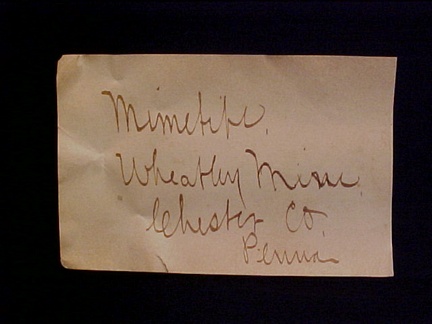 Mimetite.
Wheatley Mine
Chester Co.
Penna